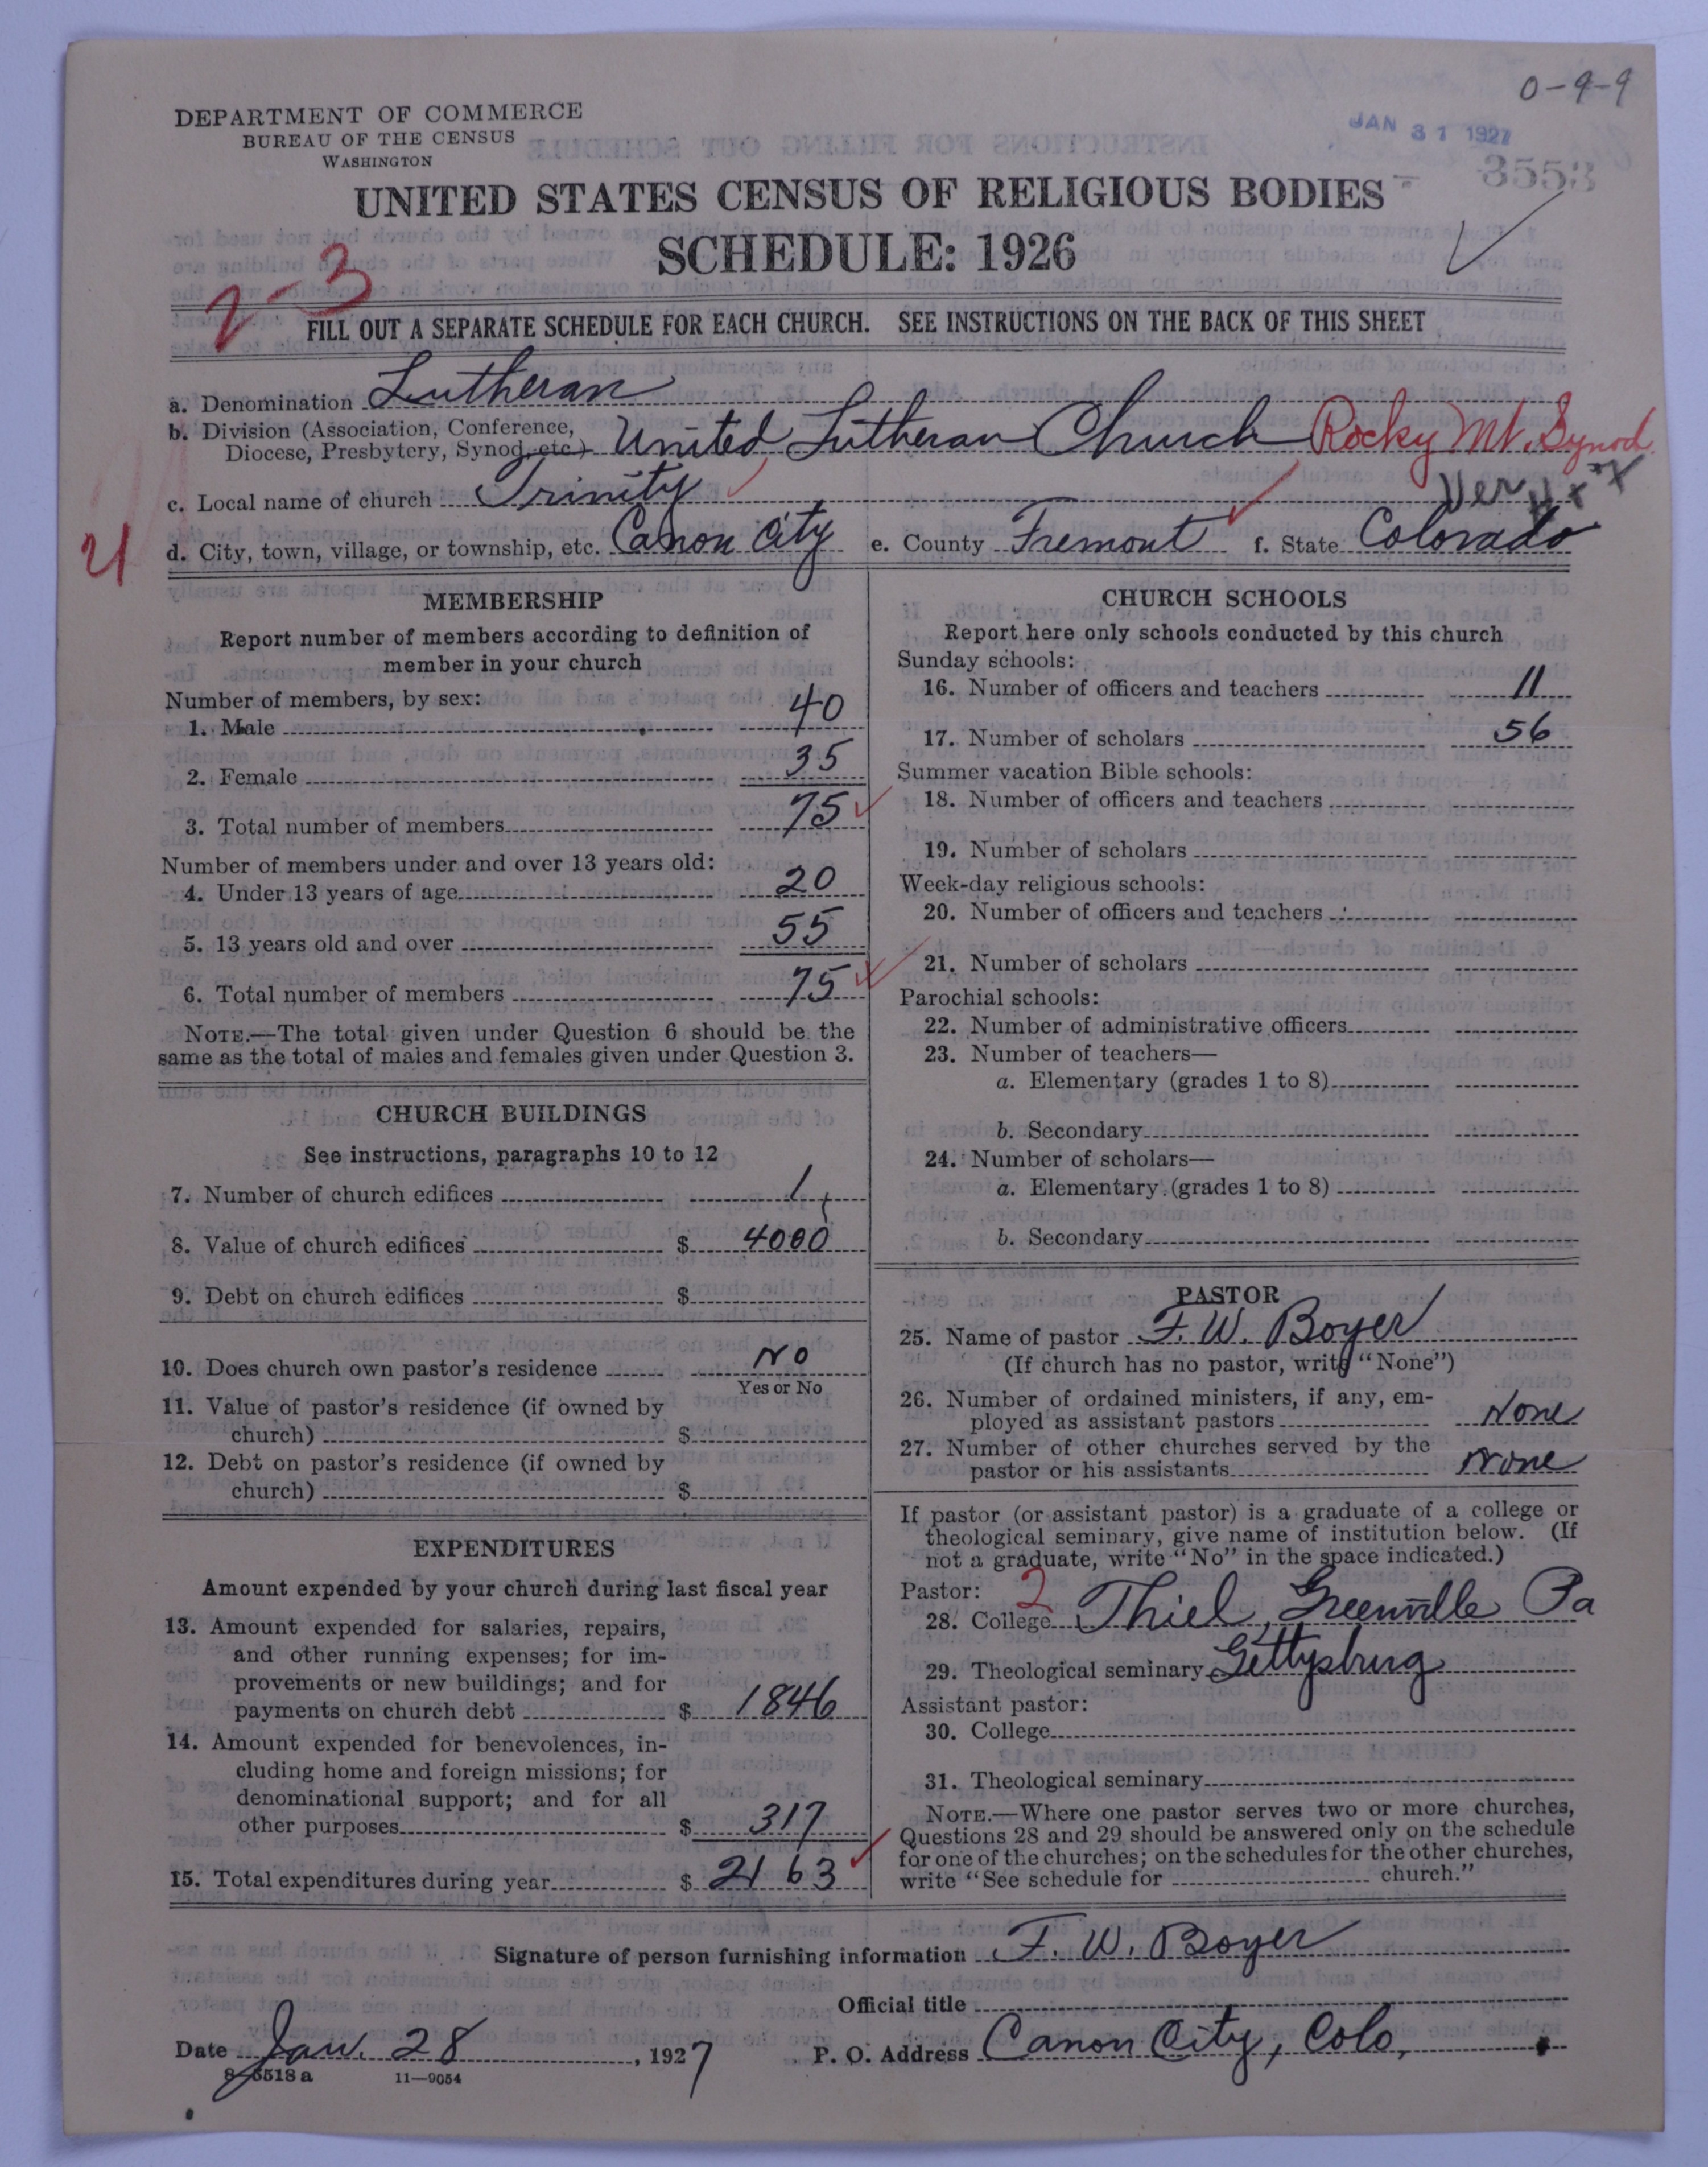 0-9-9
DEPARTMENT OF COMMERCE
BUREAU OF THE CENSUS
WASHINGTON
JAN 31 1927
3553
UNITED STATES CENSUS OF RELIGIOUS BODIES
SCHEDULE: 1926
2-3
FILL OUT A SEPARATE SCHEDULE FOR EACH CHURCH. SEE INSTRUCTIONS ON THE BACK OF THIS SHEET
a. Denomination Lutheran
b. Division (Association, Conference, Diocese, Presbytery, Synod, etc.) United Lutheran Church Rocky Mt. Synod
c. Local name of church Trinity
21
d. City, town, village, or township, etc. Canon City e. County Fremont f. State Colorado
MEMBERSHIP
Report number of members according to definition of
member in your church
Number of members, by sex:
1. Male 40
2. Female 35
3. Total number of members 75
Number of members under and over 13 years old:
4. Under 13 years of age 20
5. 13 years old and over 55
6. Total number of members 75
NOTE.—The total given under Question 6 should be the
same as the total of males and females given under Question 3.
CHURCH BUILDINGS
See instructions, paragraphs 10 to 12
7. Number of church edifices 1
8. Value of church edifices $ 4000
9. Debt on church edifices $
10. Does church own pastor's residence No
Yes or No
11. Value of pastor's residence (if owned by
church) $
12. Debt on pastor's residence (if owned by
church) $
EXPENDITURES
Amount expended by your church during last fiscal year
13. Amount expended for salaries, repairs,
and other running expenses; for im-
provements or new buildings; and for
payments on church debt $ 1846
14. Amount expended for benevolences, in-
cluding home and foreign missions; for
denominational support; and for all
other purposes $ 317
15. Total expenditures during year $ 2163
CHURCH SCHOOLS
Report here only schools conducted by this church
Sunday schools:
16. Number of officers and teachers 11
17. Number of scholars 56
Summer vacation Bible schools:
18. Number of officers and teachers
19. Number of scholars
Week-day religious schools:
20. Number of officers and teachers
21. Number of scholars
Parochial schools:
22. Number of administrative officers
23. Number of teachers—
a. Elementary (grades 1 to 8)
b. Secondary
24. Number of scholars—
a. Elementary (grades 1 to 8)
b. Secondary
PASTOR
25. Name of pastor F. W. Boyer
(If church has no pastor, write "None")
26. Number of ordained ministers, if any, em-
ployed as assistant pastors None
27. Number of other churches served by the
pastor or his assistants None
If pastor (or assistant pastor) is a graduate of a college or
theological seminary, give name of institution below. (If
not a graduate, write "No" in the space indicated.)
Pastor: 2
28. College Thiel, Greenville Pa
29. Theological seminary Gettysburg
Assistant pastor:
30. College
31. Theological seminary
NOTE.—Where one pastor serves two or more churches,
Questions 28 and 29 should be answered only on the schedule
for one of the churches; on the schedules for the other churches,
write "See schedule for church."
Signature of person furnishing information F. W. Boyer
Official title
Date Jan. 28, 1927 P. O. Address Canon City, Colo.
8-5518a 11—9054